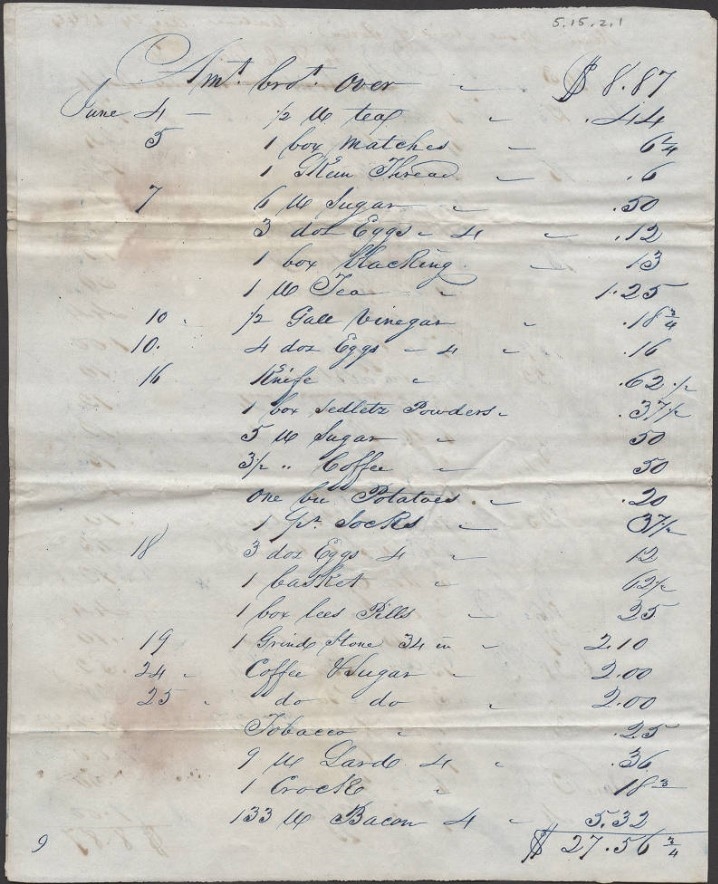 5.15.2.1
Amt. brot. over " $ 8.87
June 4 — 1/2 lb tea " .44
5 1 box matches " 6 1/4
1 Skein Thread " .6
7 6 lb Sugar " .50
3 doz Eggs " 4 " .12
1 box blacking " 13
1 lb Tea " 1.25
10 " 1/2 Gall Vinegar " .18 3/4
10. 4 doz Eggs — 4 " .16
16 Knife " .62 1/2
1 box Sedletz Powders " .37 1/2
5 lb Sugar " 50
3 1/2 " Coffee " 50
One bu Potatoes " .20
1 pr. Socks " 37 1/2
18 3 doz Eggs 4 " 12
1 basket " 62 1/2
1 box Lees Pills " 25
19 1 Grind Stone 34 in " 2.10
24 " Coffee & Sugar " 2.00
25 " do do " 2.00
Tobacco " .25
9 lb Lard 4 " .36
1 Crock " 18 3
133 lb Bacon 4 " 5.32
9 $ 27.56 3/4